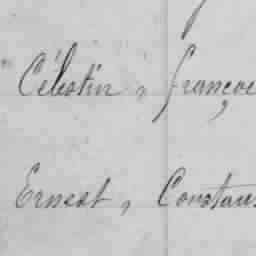 Célestin, françoi
Ernest, Constan